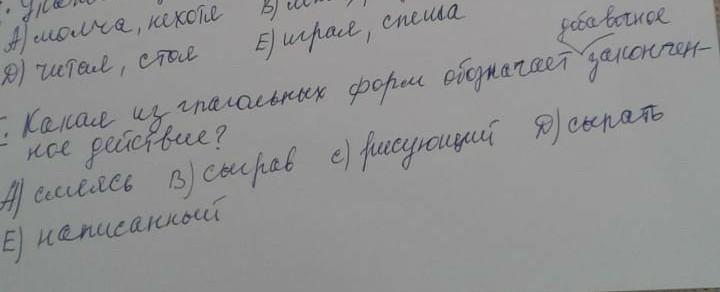 А) молча, нехотя В)
Д) читая, стоя Е) играя, спеша
добавочное
Какая из глагольных форм обозначает закончен-
ное действие?
А) смеясь В) сыграв с) рисующий Д) сыграть
Е) написанный